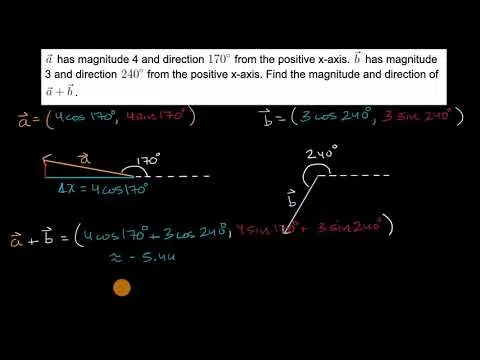 a⃗ has magnitude 4 and direction 170° from the positive x-axis. b⃗ has magnitude
3 and direction 240° from the positive x-axis. Find the magnitude and direction of
a⃗ + b⃗.
a⃗ = (4cos170°, 4sin170°)
b⃗ = (3cos240°, 3sin240°)
a⃗
170°
Δx = 4cos170°
240°
b⃗
a⃗ + b⃗ = (4cos170° + 3cos240°, 4sin170° + 3sin240°)
≈ -5.44